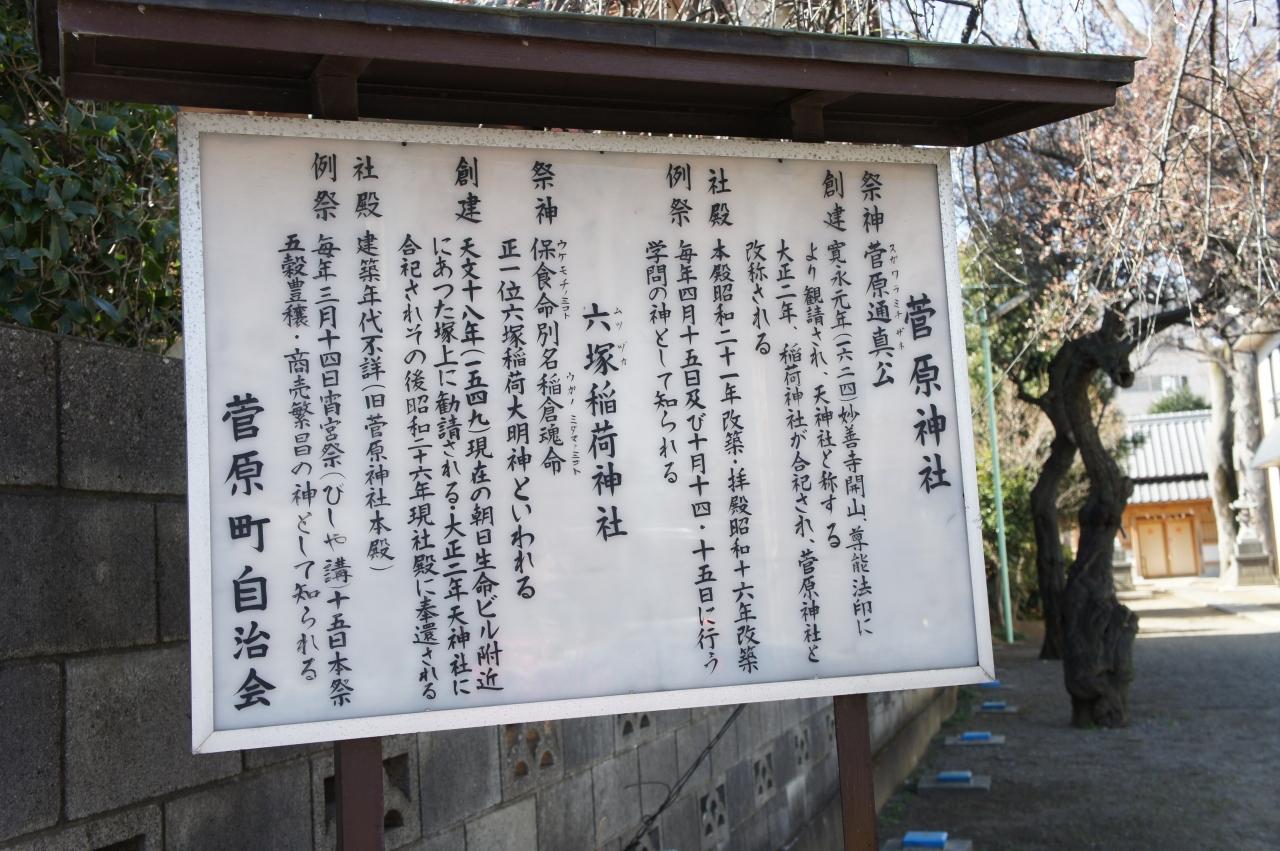 菅原神社
祭神 菅原通真公
スガワラミチザネ
創建 寛永元年(一六二四)妙善寺開山、尊能法印に
より観請され、天神社と称する
大正二年、稲荷神社が合祀され、菅原神社と
改称される
社殿 本殿昭和二十一年改築・拝殿昭和十六年改築
例祭 毎年四月十五日及び十月十四・十五日に行う
学問の神として知られる
六塚稲荷神社
ムツヅカ
祭神 保食命別名稲倉魂命
ウケモチノミコト ウガノミタマノミコト
正一位六塚稲荷大明神といわれる
創建 天文十八年(一五四九)現在の朝日生命ビル附近
にあつた塚上に勧請される・大正二年天神社に
合祀されその後昭和二十六年現社殿に奉還される
社殿 建築年代不詳(旧菅原神社本殿)
例祭 毎年三月十四日宵宮祭(びしや講十五日本祭
五穀豊穰・商売繁昌の神として知られる
菅原町自治会